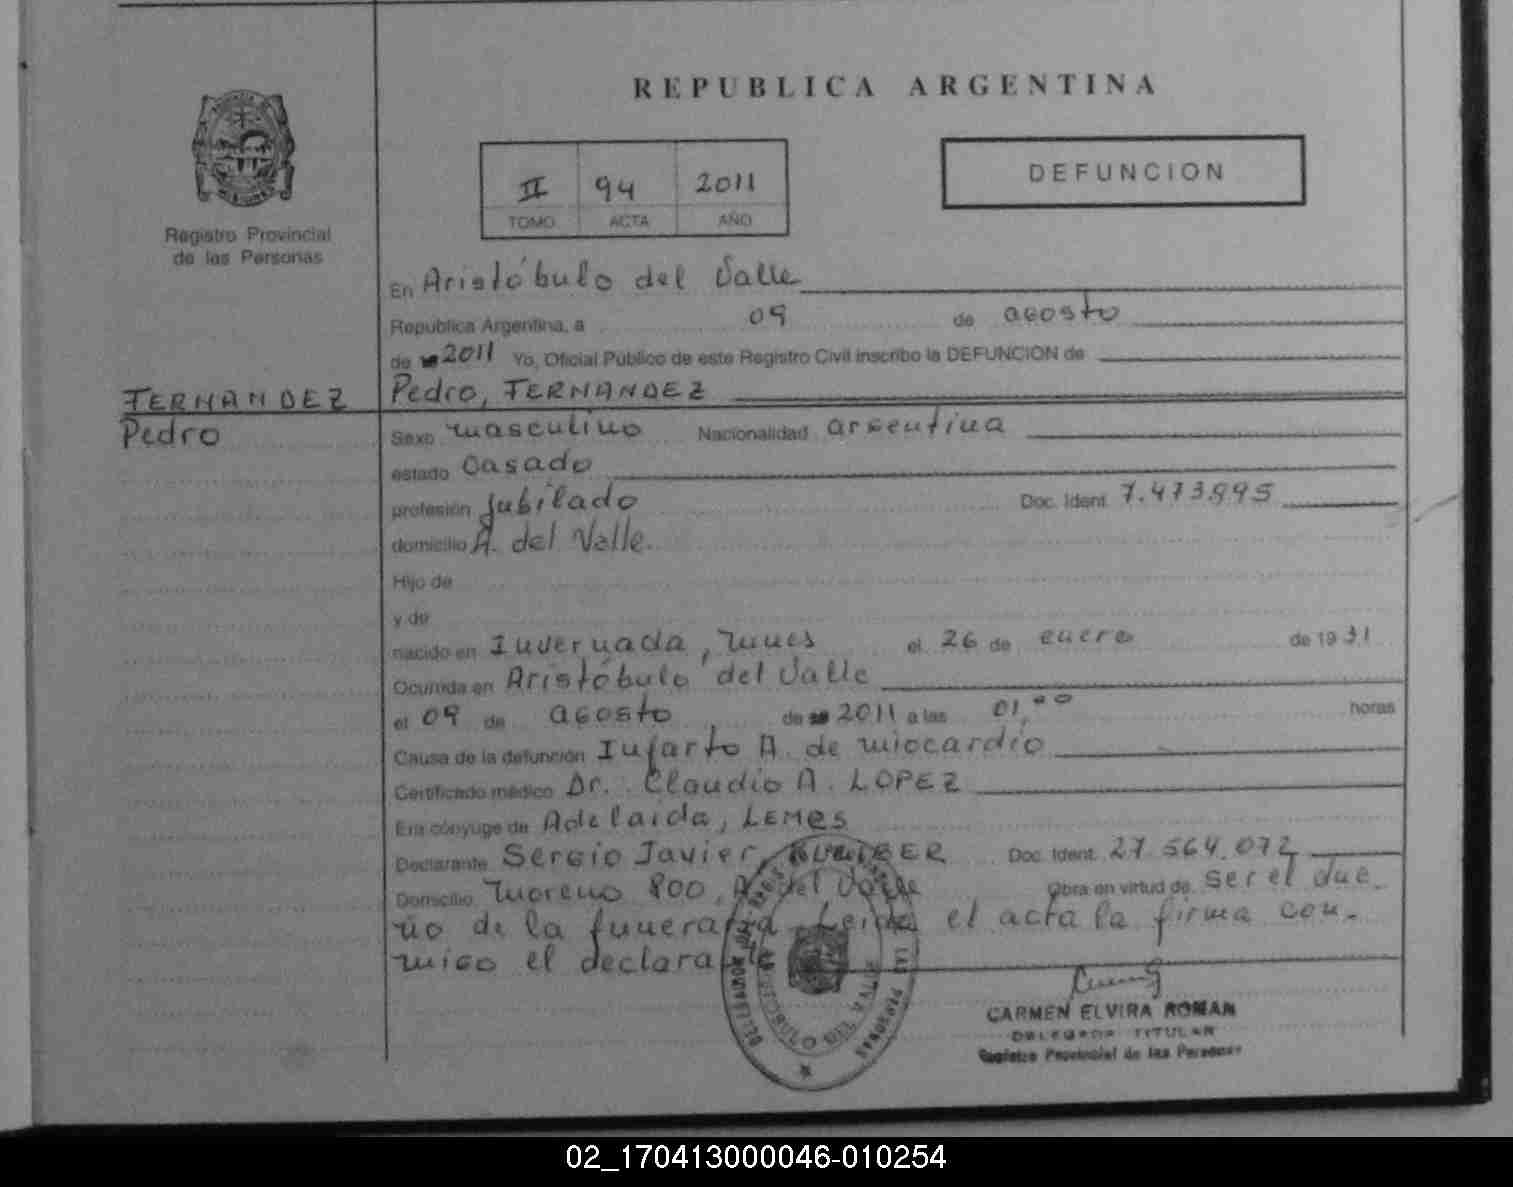 REPUBLICA ARGENTINA
II 94 2011
TOMO ACTA AÑO
DEFUNCION
Registro Provincial
de las Personas
En Aristóbulo del Valle
Republica Argentina, a 09 de agosto
de 2011 Yo, Oficial Público de este Registro Civil inscribo la DEFUNCION de
FERNANDEZ
Pedro
Pedro, FERNANDEZ
Sexo masculino Nacionalidad argentina
estado Casado
profesión Jubilado Doc. Ident. 7.473.995
domicilio A. del Valle.
Hijo de
y de
nacido en Invernada, Mnes el 26 de enero de 1931
Ocurrida en Aristóbulo del Valle
el 09 de agosto de 2011 a las 01,00 horas
Causa de la defunción Infarto A. de miocardio
Certificado médico Dr. Claudio A. LOPEZ
Era cónyuge de Adelaida, LEMES
Declarante Sergio Javier, Doc. Ident. 27.564.072
Domicilio Moreno 800, A. del Valle Obra en virtud de ser el due-
ño de la funeraria. Leida el acta la firma con-
migo el declarante
CARMEN ELVIRA ROMAN
DELEGADA TITULAR
Registro Provincial de las Personas
02_170413000046-010254